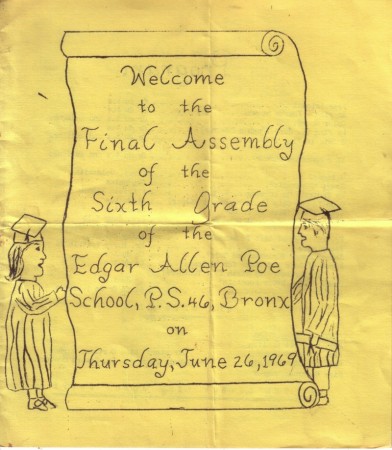 Welcome
to the
Final Assembly
of the
Sixth Grade
of the
Edgar Allen Poe
School, P.S. 46, Bronx
on
Thursday, June 26, 1969